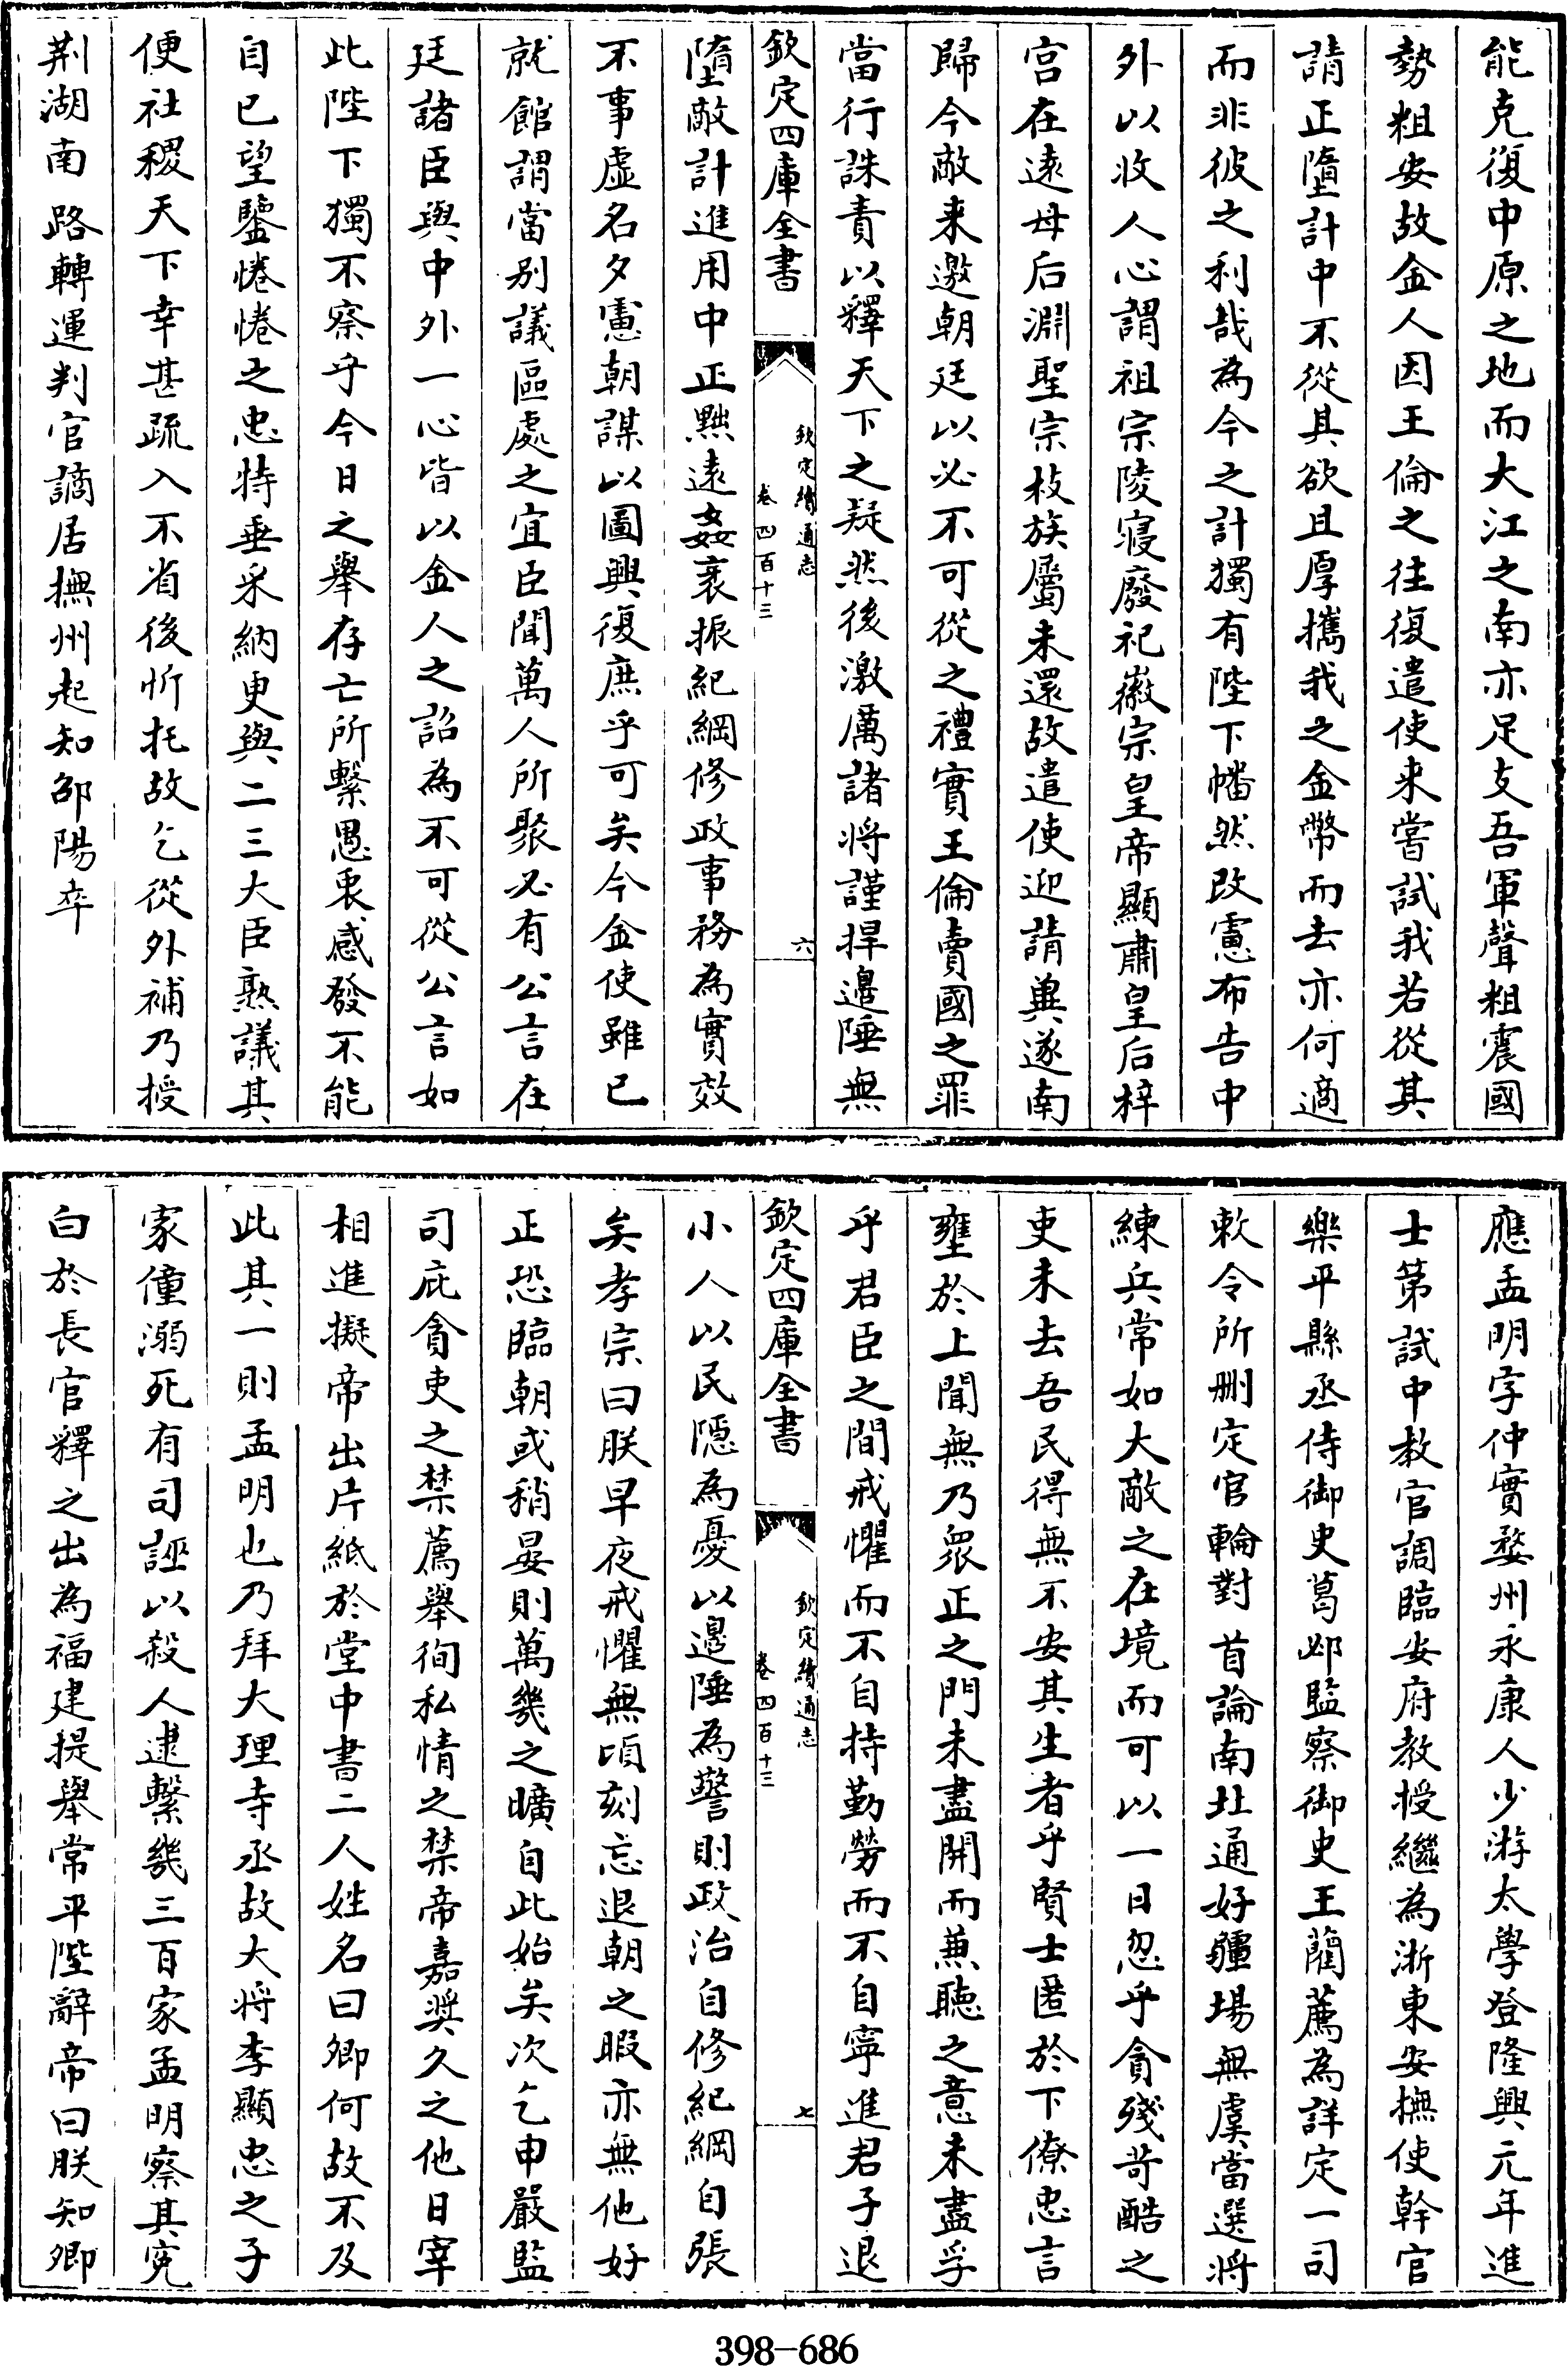 能克復中原之地而大江之南亦足支吾軍聲粗震國
勢粗安故金人因王倫之往復遣使来嘗試我若從其
請正墮計中不從其欲且厚攜我之金幣而去亦何適
而非彼之利哉為今之計獨有陛下幡然改慮布告中
外以收人心謂祖宗陵寢廢祀徽宗皇帝顯肅皇后梓
宫在逺母后淵聖宗枝族屬未還故遣使迎請冀遂南
歸今敵来邀朝廷以必不可從之禮實王倫賣國之罪
當行誅責以釋天下之疑然後激厲諸将謹捍邊陲無
欽定四庫全書
欽定續通志
卷四百十三
六
墮敵計進用中正黜逺姦衺振紀綱修政事務為實效
不事虚名夕慮朝謀以圖興復庶乎可矣今金使雖已
就館謂當别議區處之宜臣聞萬人所聚必有公言在
廷諸臣與中外一心皆以金人之詔為不可從公言如
此陛下獨不察乎今日之舉存亡所繫愚衷感發不能
自已望鑒惓惓之忠特垂采納更與二三大臣熟議其
便社稷天下幸甚疏入不省後忻托故乞從外補乃授
荆湖南路轉運判官謫居撫州起知邵陽卒
應孟明字仲實婺州永康人少游太學登隆興元年進
士第試中教官調臨安府教授繼為浙東安撫使幹官
樂平縣丞侍御史葛邲監察御史王藺薦為詳定一司
敕令所刪定官輪對首論南北通好疆場無虞當選将
練兵常如大敵之在境而可以一日忽乎貪殘苛酷之
吏未去吾民得無不安其生者乎賢士匿於下僚忠言
壅於上聞無乃衆正之門未盡開而兼聴之意未盡孚
乎君臣之間戒懼而不自持勤勞而不自寧進君子退
欽定四庫全書
欽定續通志
卷四百十三
七
小人以民隱為憂以邊陲為警則政治自修紀綱自張
矣孝宗曰朕早夜戒懼無頃刻忘退朝之暇亦無他好
正恐臨朝或稍晏則萬幾之曠自此始矣次乞申嚴監
司庇貪吏之禁薦舉徇私情之禁帝嘉奨久之他日宰
相進擬帝出片紙於堂中書二人姓名曰卿何故不及
此其一則孟明也乃拜大理寺丞故大将李顯忠之子
家僮溺死有司誣以殺人逮繫幾三百家孟明察其寃
白於長官釋之出為福建提舉常平陛辭帝曰朕知卿
398-686